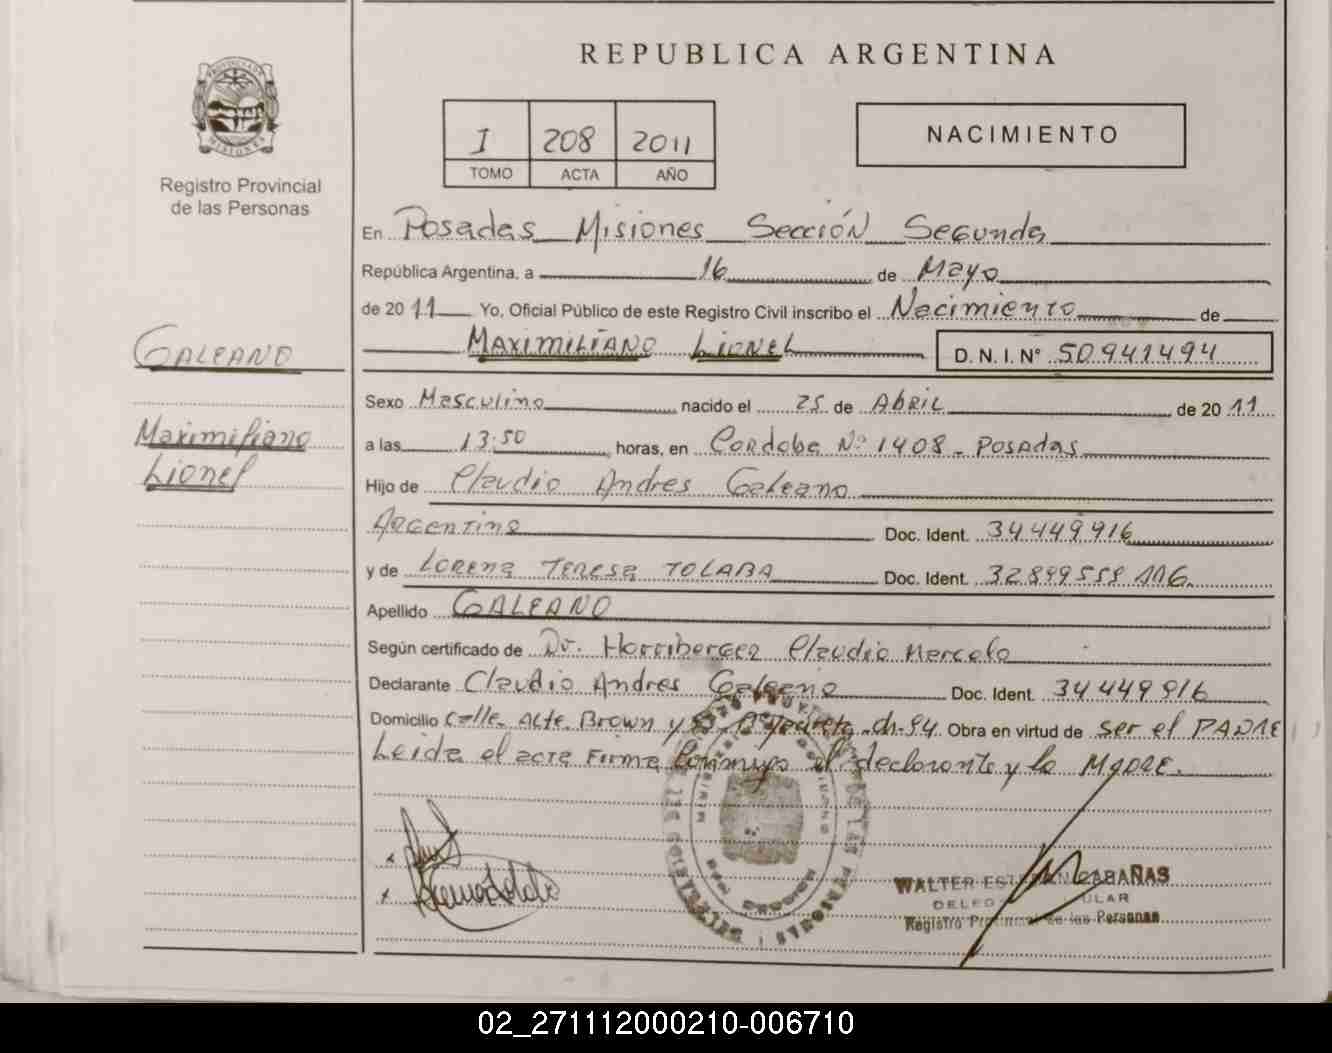 REPUBLICA ARGENTINA
PROVINCIA DE MISIONES
Registro Provincial
de las Personas
I 208 2011
TOMO ACTA AÑO
NACIMIENTO
En Posadas Misiones Sección Segunda
República Argentina, a 16 de Mayo
de 2011 Yo, Oficial Público de este Registro Civil inscribo el Nacimiento de
Maximiliano Lionel D.N.I. Nº 50941494
GALEANO
Maximiliano
Lionel
Sexo Masculino nacido el 25 de ABRIL de 2011
a las 13:50 horas, en Cordoba Nº 1408 - Posadas
Hijo de Claudio Andres Galeano
Argentino Doc. Ident. 34449916
y de Lorena Teresa TOLABA Doc. Ident. 32899559
Apellido GALEANO
Según certificado de Dr. Claudio Marcelo
Declarante Claudio Andres Galeano Doc. Ident. 34449916
Domicilio Calle Alte. Brown y ch-94 Obra en virtud de ser el PADRE
Leida el acta Firma conmigo el declarante y la MADRE.
WALTER ESTEBAN CABAÑAS
Registro Provincial de las Personas
02_271112000210-006710